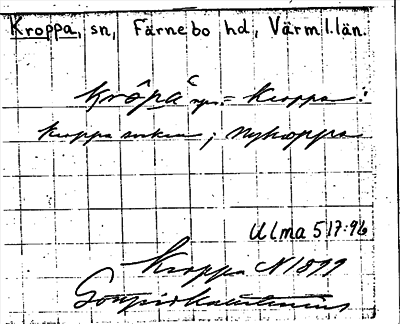 Kroppa, sn, Färnebo hd, Värml.län.
krôpa = Kroppa:
Kroppa socken; Nykroppa
Ulma 517:96
Kroppa N 1899